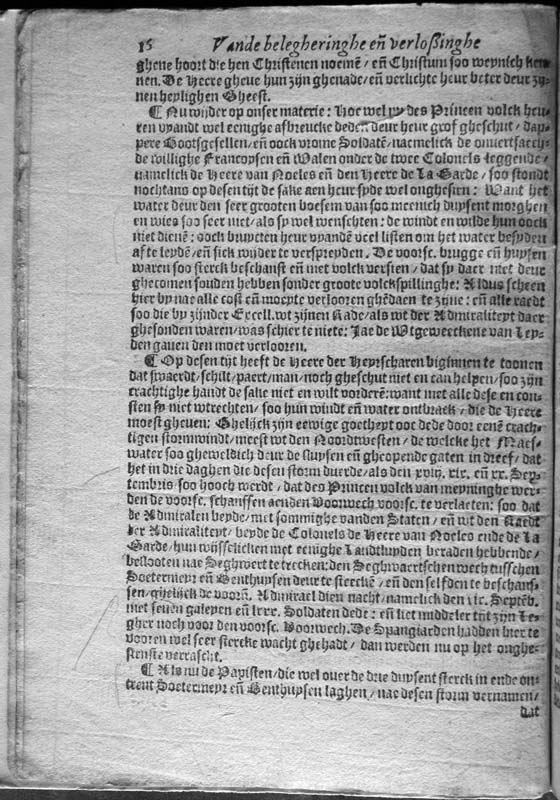 16 Vande belegheringhe eñ verloßinghe
ghene hoort die hen Christenen noemē / eñ Christum soo weynich ken-
nen. De Heere gheue hun zijn ghenade / eñ verlichte heur beter deur zij-
nen heylighen Gheest.
¶ Nu wijder op onser materie: Hoe wel des Princen volck heu-
ren vyandt wel eenighe afbreucke dede / deur heur grof gheschut / dap-
pere Bootsgesellen / eñ oock vrome Soldatē / namelick de onuertsaech-
de willighe Francoysen eñ Walen onder de twee Colonels leggende /
namelick de Heere van Noeles eñ den Heere de La Garde / soo stondt
nochtans op desen tijt de sake aen heur syde wel onghesien: Want het
water deur den seer grooten boesem van soo menich duysent morghen
en wies soo seer niet / als sy wel wenschten: de windt en wilde hun oock
niet dienē: oock buyten heur vyandē veel listen om het water besyden
af te leydē / eñ sick wijder te verspreyden. De voorsc. brugge eñ huysen
waren soo sterck beschanst eñ met volck versien / dat sy daer niet deur
ghecomen souden hebben sonder groote volckspillinghe: Aldus scheen
hier by nae alle cost eñ moeyte verlooren ghedaen te zijne: eñ alle raedt
soo die by zijnder Excell. wt zijnen Rade / als wt der Admiraliteyt daer
ghesonden waren / was schier te niete: Jae de Wtgeweeckene van Ley-
den gauen den moet verlooren.
¶ Op desen tijt heeft de Heere der Heyrscharen biginnen te toonen
dat swaerdt / schilt / paert / man / noch gheschut niet en can helpen / soo zijn
crachtighe handt de sake niet en wilt vorderē: want met alle dese en con-
sten sy niet wtrechten / soo hun windt eñ water ontbrack / die de Heere
moest gheuen: Ghelijck zijn eewige goetheyt ooc dede door eenē crach-
tigen stormwindt / meest wt den Noordtwesten / de welcke het Maes-
water soo gheweldich deur de sluysen eñ gheopende gaten in dreef / dat
het in drie daghen die desen storm duerde / als den xviij. xix. eñ xx. Sep-
tembris soo hooch werdt / dat des Princen volck van meyninghe wer-
den de voorsc. schanssen aenden Voorwech voorsc. te verlaeten: soo dat
de Admiralen beyde / met sommighe vanden Staten / eñ wt den Raedt
der Admiraliteyt / beyde de Colonels de Heere van Noeles ende de La
Garde / hun wijsselicken met eenighe Landtluyden beraden hebbende /
beslooten nae Seghwert te trecken: den Seghwaertschen wech tusschen
Soetermeyr eñ Benthuysen deur te steecken / eñ den selfden te beschans-
sen / ghelijck de voorñ. Admirael dien nacht / namelick den xix. Septēb.
met seuen galeyen eñ lxxx. Soldaten dede: eñ liet middeler tijt zijn Le-
gher noch voor den voorsc. Voorwech. De Spangiarden hadden hier te
vooren wel seer stercke wacht ghehadt / dan werden nu op het onghe-
sienste verrascht.
¶ Als nu de Papisten / die wel ouer de drie duysent sterck in ende on-
trent Soetermeyr eñ Benthuysen laghen / nae desen storm vernamen /
dat